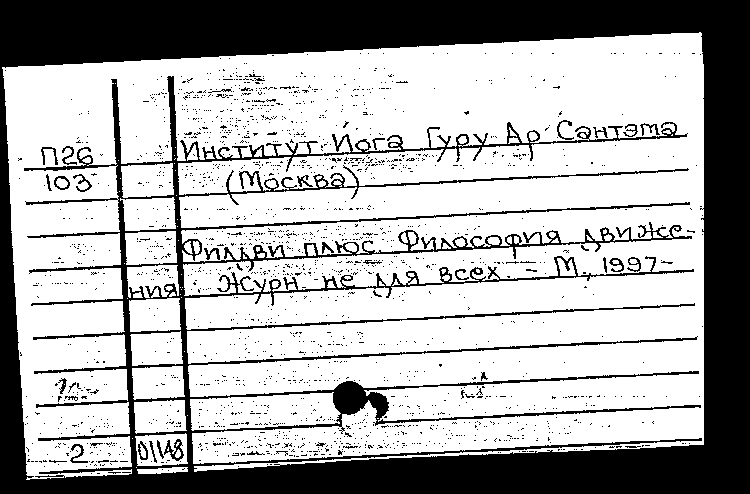 П26
103
Институт Йога Гуру Ар Сантэма
(Москва)
Филдви плюс. Философия движе-
ния : Журн. не для всех. - М., 1997-
2 01148